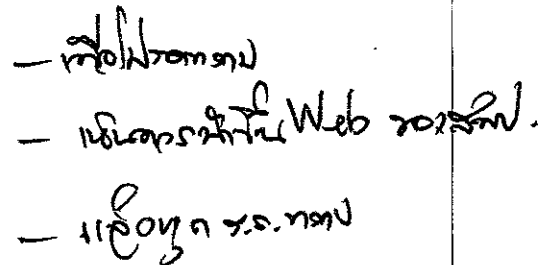 - เพื่อโปรดทราบ
- เห็นควรนำขึ้น Web ของสลป.
- แจ้งทุก ร.ร. ทราบ